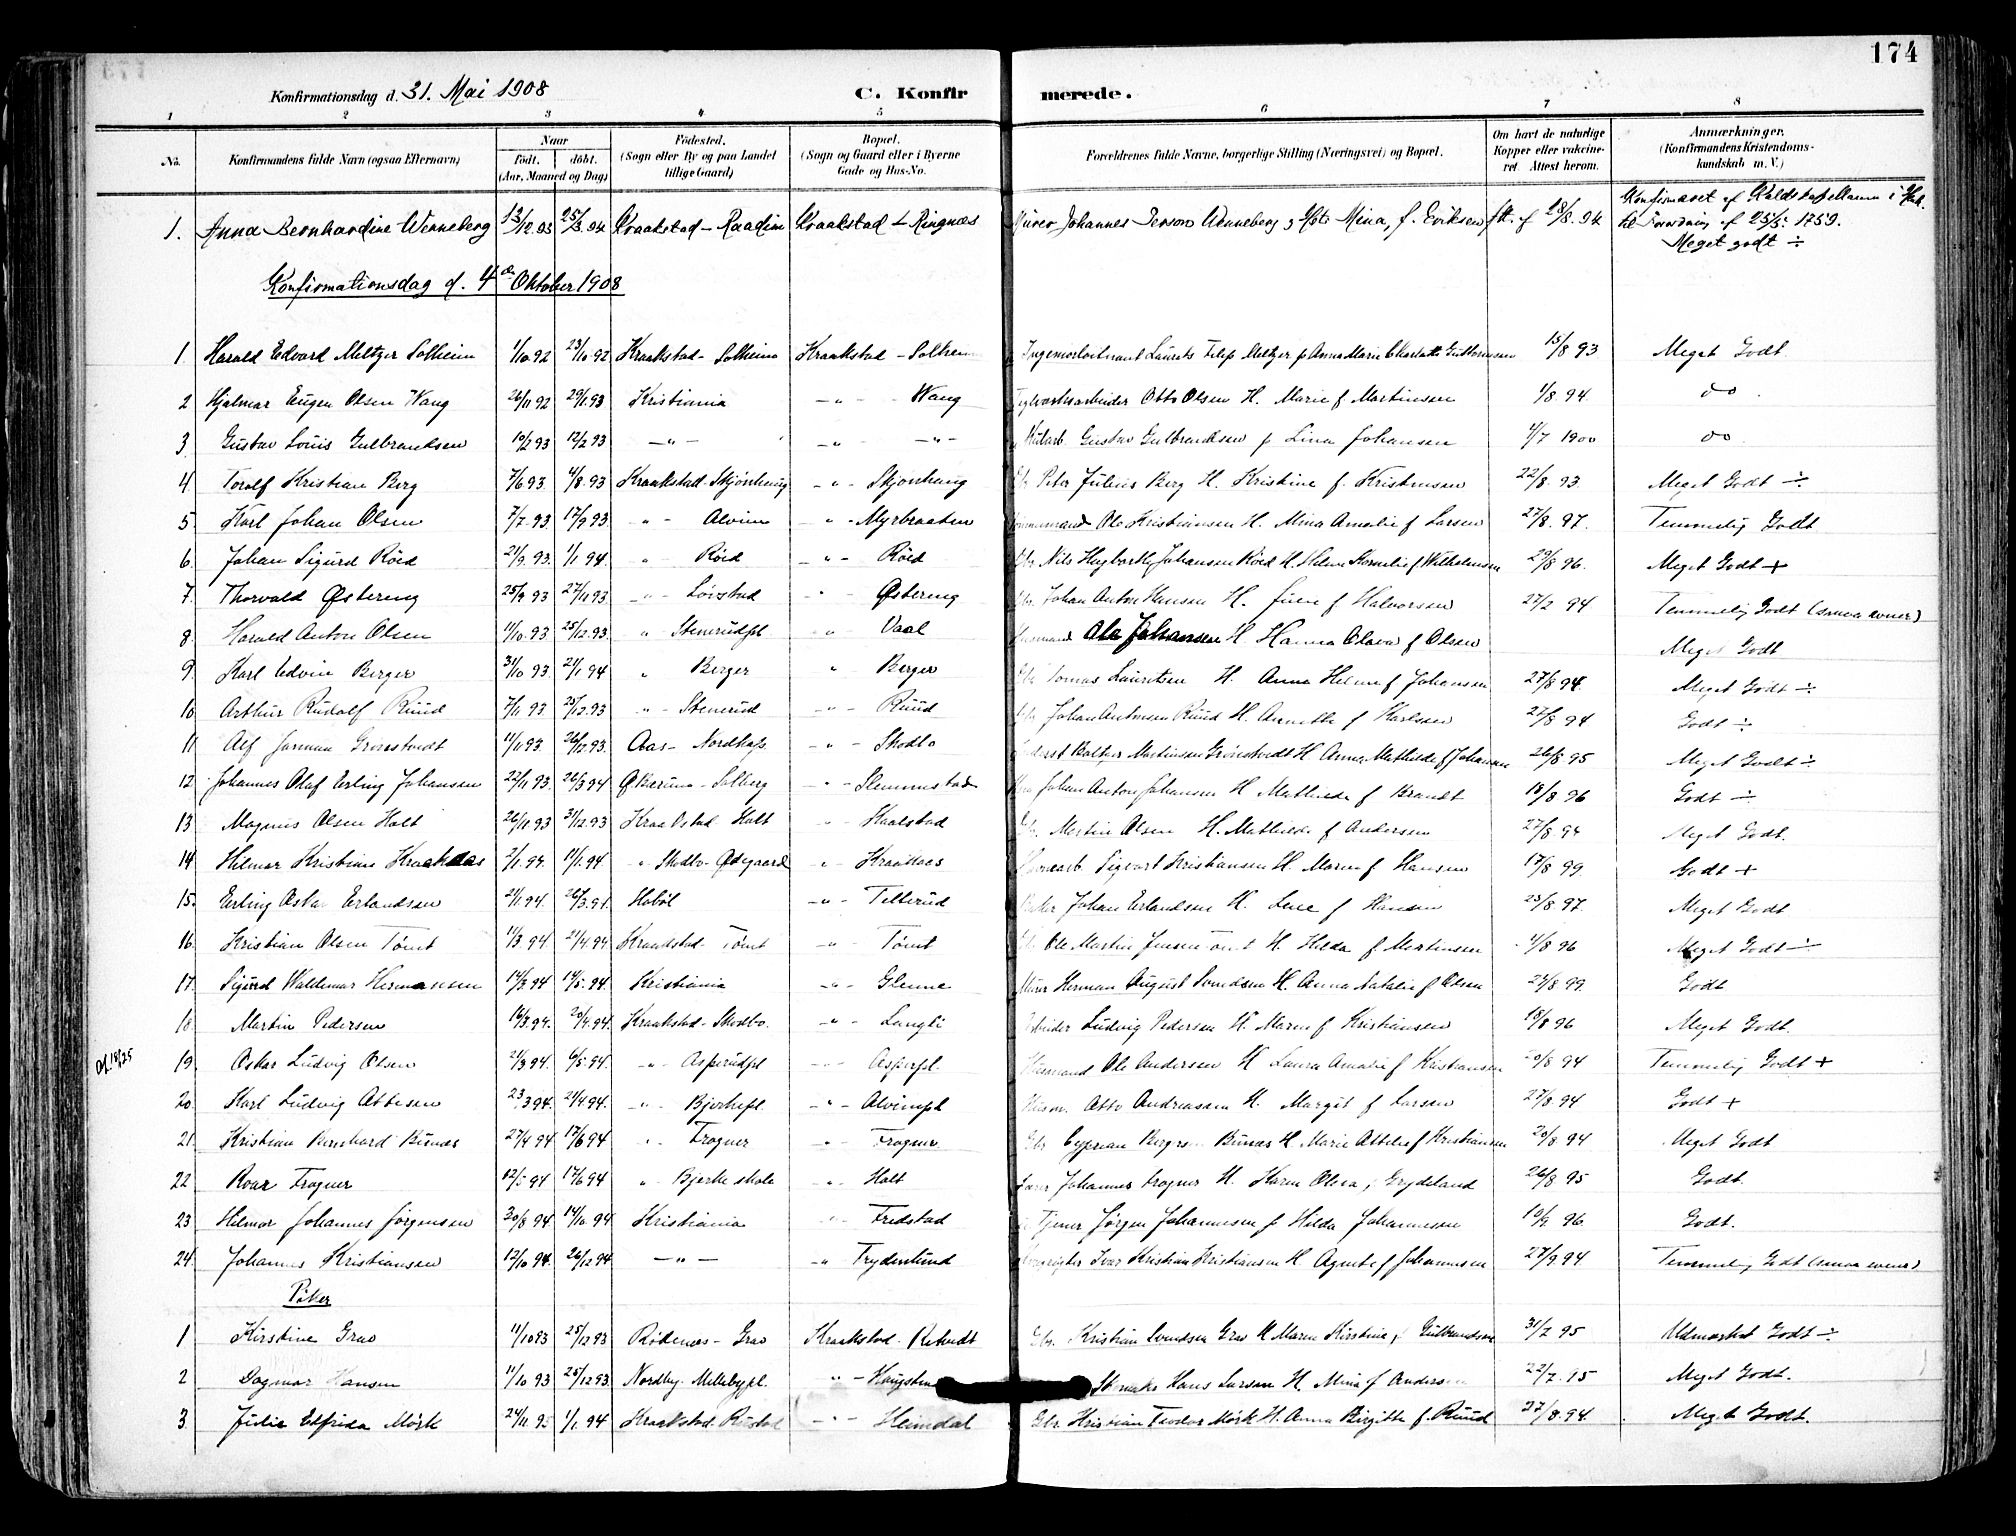 174
Konfirmationsdag d. 31. Mai 1908 C. Konfirmerede.
1 2 3 4 5 6 7 8
No. Konfirmandens fulde Navn (ogsaa Efternavn) Naar födt. döbt. (Aar, Maaned og Dag) Födested. (Sogn eller By og paa Landet tillige Gaard) Bopæl. (Sogn og Gaard eller i Byerne Gade og Hus-No. Forældrenes fulde Navne, borgerlige Stilling (Næringsvei) og Bopæl. Om havt de naturlige Kopper eller vaccineret Attest herom. Anmærkninger. (Konfirmandens Kristendomskundskab m. V.)
1. Anna Bernhardine Wenneberg 13/12 93 25/3 94 Kraakstad - Raadim Kraakstad - Ringnæs Murer Johannes Wenneberg Mina f. Eriksen 18/8. 94 Konfirmeret af til Forordning af 25/5. 1759. Meget godt ÷
Konfirmationsdag d. 4de Oktober 1908
1. Harald Edvard Meltzer Solheim 1/10 92 23/10 92 Kraakstad - Solheim Kraakstad - Solheim Laurits Filip Meltzer Anna Marie Guttormsen 15/8 93 Meget Godt
2 Hjalmar Eugen Olsen Wang 26/11 92 29/1 93 Kristiania -"- Wang Otto Olsen H. Marie f Martinsen 1/8 94. do
3 Gustav Louis Gulbrandsen 10/2 93 12/2 93 -"- -"- -"- Gustav Gulbrandsen Lina Johansen 4/7 1900 do
4 Toralf Kristian Berg 7/6 93 4/8 93 Kraakstad - Skjönhaug -"- Skjönhaug Peter Julius Berg H. Kristine f. Kristensen 22/8. 93. Meget Godt ÷
5 Karl Johan Olsen 7/7 93 17/9 93 -"- Alvim "- Myrbraaten Ole Kristiansen H. Mina Amalie f Larsen 27/8. 97. Temmelig Godt
6 Johan Sigurd Röed 21/9. 93. 1/1 94 " Röed "- Röed Nils Johansen Röed H. Helene Kornelie f Wilhelmsen 29/8 96. Meget Godt +
7. Thorvald Østereng 25/9 93 27/11 93 -"- " Østereng Johan Anton Hansen H. f Halvorsen 27/2 94 Temmelig Godt (smaa evner)
8 Harald Anton Olsen 11/10 93 25/12 93. " Stenerudpl. " Vaal Husmand Ole Johansen H Hanna Olava f Olsen Meget Godt
9. Karl Edvin Berger 31/10 93. 21/1 94 " Berger " Berger Tomas Lauritsen H. Anna Helene f Johansen 27/8 94. Meget Godt ÷
10 Arthur Rudolf Ruud 7/11 93. 25/12 93 -"- Stenerud -"- Ruud Johan Antonsen Ruud H. Annette f Karlsen 27/8 94 Godt ÷
11 Alf Grönstvedt 11/11 93. 26/12 93. Aas - -"- Skodbo Baltzer Martinsen Grönstvedt H Anna Mathilde f Johansen 26/8 95 Meget Godt ÷
12 Johannes Olaf Erling Johansen 22/11 93. 26/3 94 Solberg -"- Slemmestad Johan Anton Johansen H Mathilde f Brandt 18/8 96 Godt ÷
13 Magnus Olsen Holt 26/11 93 31/12 93 Kraakstad Holt " Haalstad Martin Olsen H. Mathilde f Andersen 27/8 94 Meget Godt.
14 Hilmar Kristian Kraakaas 2/1 94. 11/1 94 " Skodbo-Ødegaard " Kraakaas Sigvart Kristiansen H. Maren f Hansen 17/8 99 Godt +
15. Erling Oskar Erlandsen 21/1 94. 26/3 94. Hobøl -"- Tetterud Johan Erlandsen H. Lene f Hansen 23/8 97. Meget Godt
16. Kristian Olsen Tömt 11/3 94 21/4 94 Kraakstad - Tömt -"- Tömt Ole Martin Jensen H. Hilda f Martinsen 4/8 96 Meget Godt ÷
17. Sigurd Waldemar Hermansen 14/3 94 14/5. 94. Kristiania -"- Glenne Murer Herman August Svendsen H. Anna Natalie f Olsen 22/8 99. Godt
18 Martin Pedersen 16/3 94. 20/4. 94. Kraakstad - Skodbo. -"- Langli Arbeider Ludvig Pedersen H. Maren f Kristiansen 18/8 96 Meget Godt.
19. Oskar Ludvig Olsen 21/3 94. 6/5 94. -"- Asperudpl "- Asperpl. Husmand Ole Andersen H Laura Amalie f Kristiansen 20/8 94 Temmelig Godt +
20 Karl Ludvig Ottesen 23/3 94. 21/4 94. -"- Bjerkepl. -"- Alvimpl Otto Andreassen H. Margit f Larsen 27/8. 94 Godt +
21 Kristian Bernhard Bunæs 27/4 94 17/6 94 " Frogner " Frogner Cyprian Bunæs H Marie f Kristiansen 20/8 94 Meget Godt
22 Roar Frogner 12/5 94 17/6 94 " Bjerke skole "- Holt Johannes Frogner H. Karen Oliva f Grydeland 26/8 95 Godt
23 Hilmar Johannes Jørgensen 30/8 94 14/10 94 Kristiania "- Fredstad Tjener Jørgen Johannesen Hilda Johannesen 10/9 96 Godt.
24. Johannes Kristiansen 12/10 94. 26/12 94 -"- -"- Frydenlund Ivar Kristian Kristiansen H. Agnete f Johannesen 27/9 94. Temmelig Godt (smaa evner)
Piker
1 Kirstine Grav 11/10 93 25/12 93. Rödenæs - Grav Kraakstad - Kristian Svendsen Grav H Maren Kirstine f Gulbrandsen 31/7 95 Udmærket Godt ÷
2 Dagmar Hansen 11/10 93 25/12 93. Nordby - Millebypl. "- Haugsten Hans Larsen H. Mina f Andersen 22/7. 95 Meget Godt.
3. Julie Elfrida Mörk 24/11. 93 1/1. 94 Kraakstad - Rustad -"- Heimdal Gbr. Kristian Teodor Mörk H. Anna Birgitte f. Ruud 27/8. 94. Meget Godt.